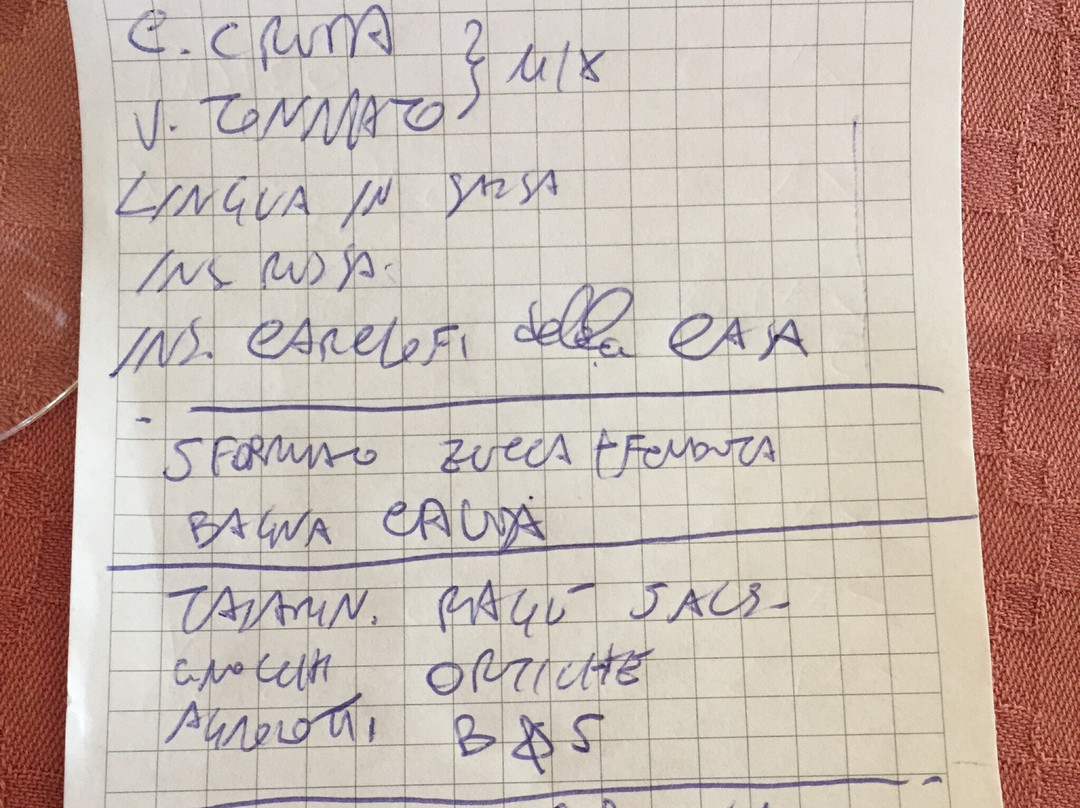 C. CRUDA
V. TONNATO } MIX
LINGUA IN SALSA
INS RUSSA.
INS. CARCIOFI della CASA
- SFORMATO ZUCCA + FONDUTA
BAGNA CAUDA
TAJARIN. RAGÙ SALS-
GNOCCHI ORTICHE
AGNOLOTTI B & S